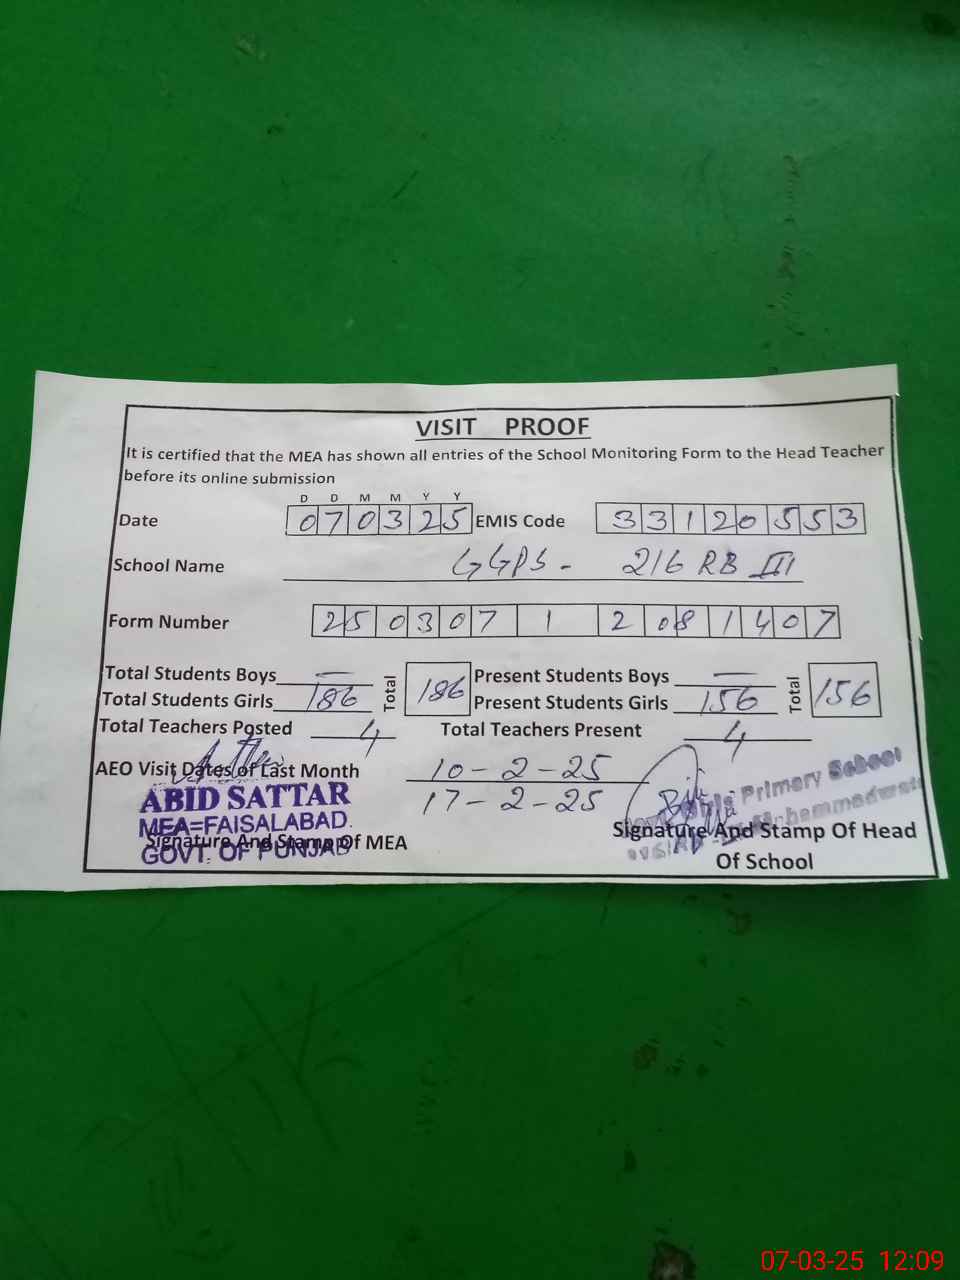 VISIT PROOF
It is certified that the MEA has shown all entries of the School Monitoring Form to the Head Teacher
before its online submission
D D M M Y Y
Date 070325 EMIS Code 33120553
School Name GGPS - 216 RB III
Form Number 250307 1 2081407
Total Students Boys — Total 186 Present Students Boys — Total 156
Total Students Girls 186 Present Students Girls 156
Total Teachers Posted 4 Total Teachers Present 4
AEO Visit Dates of Last Month 10-2-25
17-2-25
ABID SATTAR
MEA=FAISALABAD.
GOVT. OF PUNJAB
Signature And Stamp Of MEA
Girls Primary School
Signature And Stamp Of Head
Of School
07-03-25 12:09